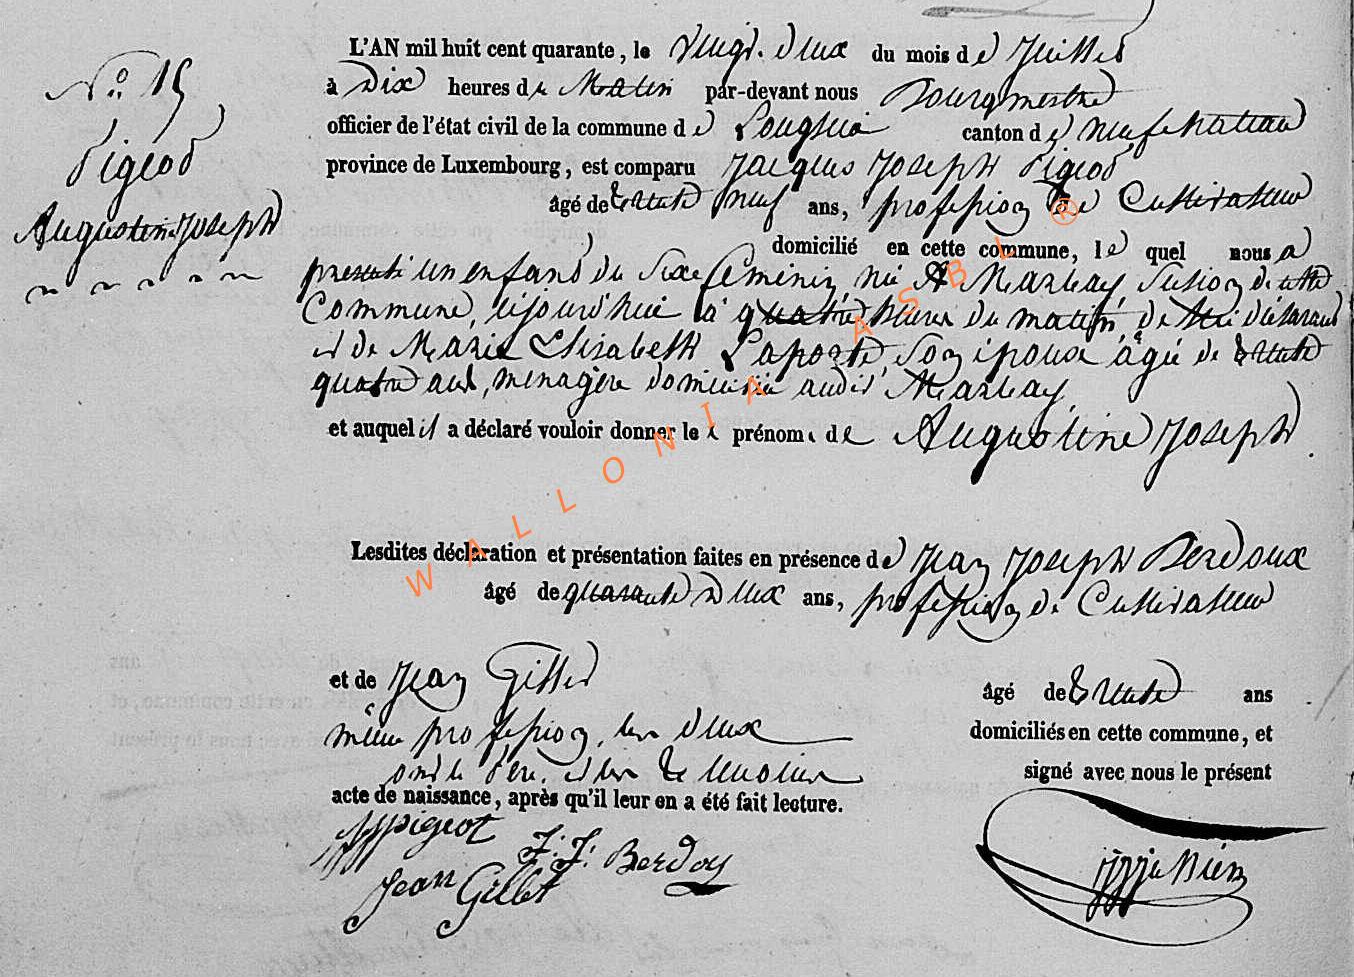 N° 15
Pigeot
Augustine Joseph
L'AN mil huit cent quarante, le vingt deux du mois de Juillet
à Dix heures du Matin par-devant nous Bourgmestre
officier de l'état civil de la commune de Longlier canton de neufchateau
province de Luxembourg, est comparu Jacques Joseph Pigeot
âgé de trente neuf ans, profession de Cultivateur
domicilié en cette commune, le quel nous a
presenté un enfant du sexe feminin, né A Marbay, Section de cette
Commune, aujourd'hui à quatre heures du matin, de lui déclarant
et de Marie Elisabeth Laporte son épouse âgée de trente
quatre ans, menagère domiciliée audit Marbay,
et auquel il a déclaré vouloir donner le prénom de Augustine Joseph.
Lesdites déclaration et présentation faites en présence de Jean Joseph Berdoux
âgé de quarante Deux ans, profession de Cultivateur
et de Jean Gillet âgé de trente ans
même profession, les deux domiciliés en cette commune, et
ont le père, et les témoins signé avec nous le présent
acte de naissance, après qu'il leur en a été fait lecture.
JJ pigeot J. J. Berdoux
Jean Gillet
WALLONIA ASBL ®